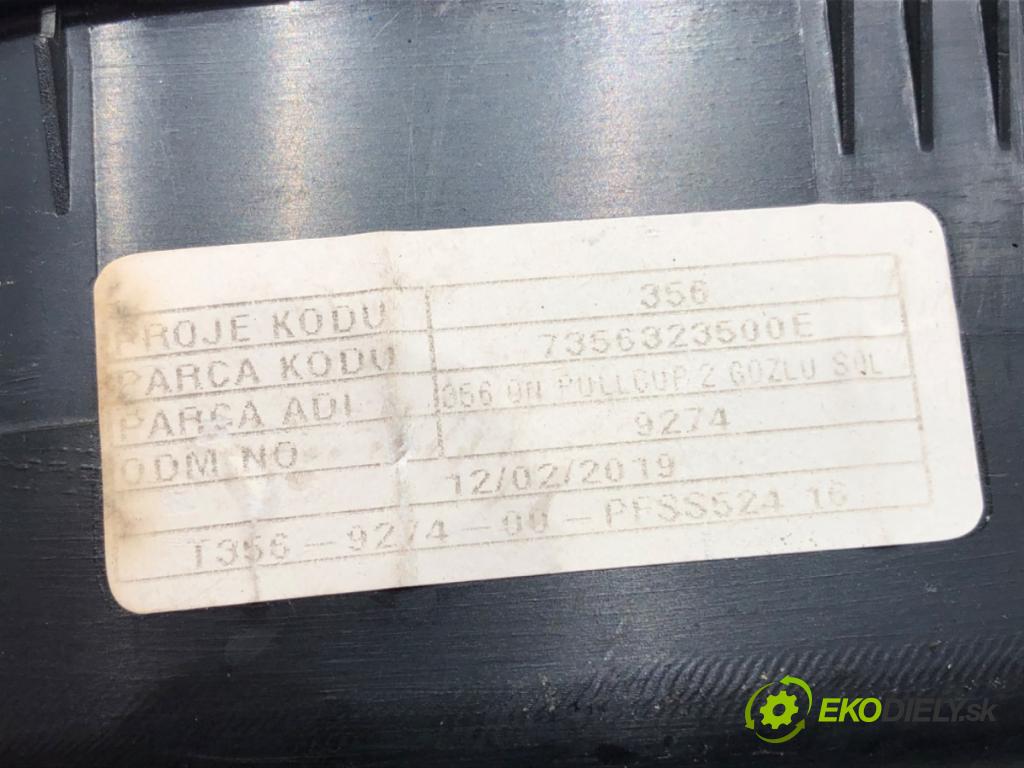 PROJE KODU 356
PARCA KODU 7356323500E
PARCA ADI 356 ON PULLCUP 2 GOZLU SOL
ODM NO 9274
12/02/2019
T356-9274-00-PFSS524 16
EKODIELY.sk